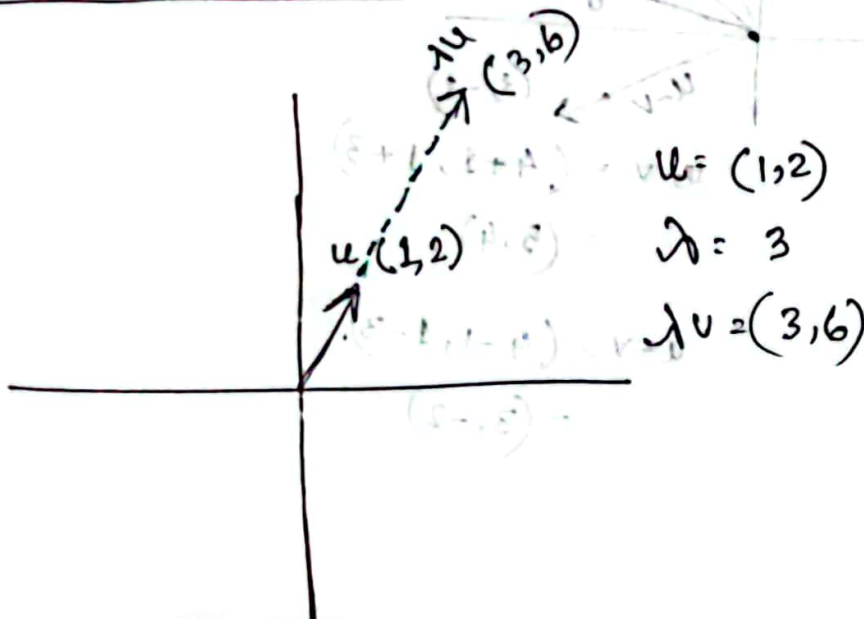 λu (3,6)
u (1,2)
u = (1,2)
λ = 3
λv = (3,6)